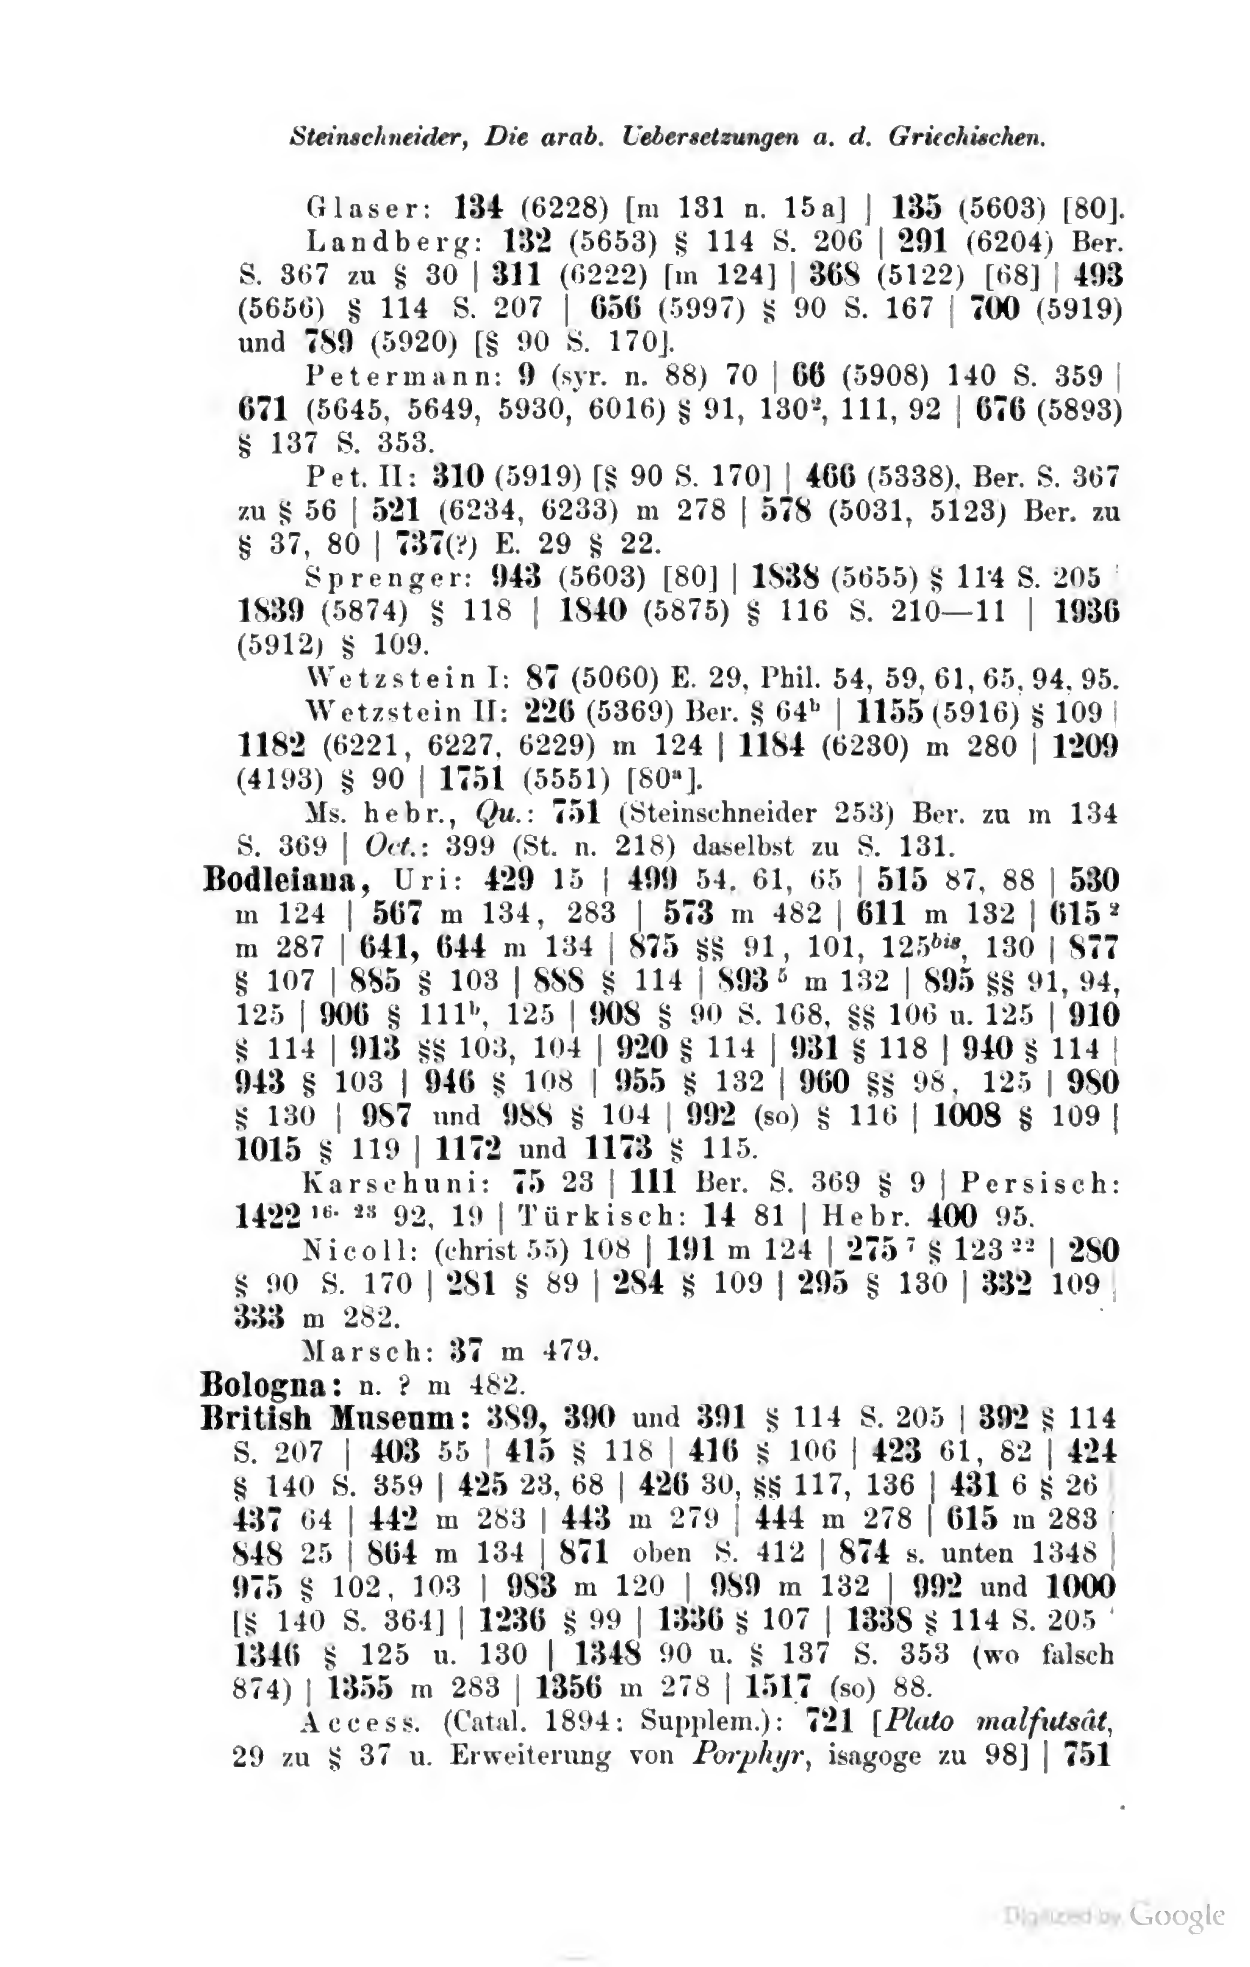 Steinschneider, Die arab. Uebersetzungen a. d. Griechischen.
Glaser: 134 (6228) [m 131 n. 15a] | 135 (5603) [80].
Landberg: 132 (5653) § 114 S. 206 | 291 (6204) Ber.
S. 367 zu § 30 | 311 (6222) [m 124] | 368 (5122) [68] | 493
(5656) § 114 S. 207 | 656 (5997) § 90 S. 167 | 700 (5919)
und 789 (5920) [§ 90 S. 170].
Petermann: 9 (syr. n. 88) 70 | 66 (5908) 140 S. 359 |
671 (5645, 5649, 5930, 6016) § 91, 130², 111, 92 | 676 (5893)
§ 137 S. 353.
Pet. II: 310 (5919) [§ 90 S. 170] | 466 (5338), Ber. S. 367
zu § 56 | 521 (6234, 6233) m 278 | 578 (5031, 5123) Ber. zu
§ 37, 80 | 737(?) E. 29 § 22.
Sprenger: 943 (5603) [80] | 1838 (5655) § 114 S. 205 |
1839 (5874) § 118 | 1840 (5875) § 116 S. 210—11 | 1936
(5912) § 109.
Wetzstein I: 87 (5060) E. 29, Phil. 54, 59, 61, 65, 94, 95.
Wetzstein II: 226 (5369) Ber. § 64ᵇ | 1155 (5916) § 109 |
1182 (6221, 6227, 6229) m 124 | 1184 (6230) m 280 | 1209
(4193) § 90 | 1751 (5551) [80ᵃ].
Ms. hebr., Qu.: 751 (Steinschneider 253) Ber. zu m 134
S. 369 | Oct.: 399 (St. n. 218) daselbst zu S. 131.
Bodleiana, Uri: 429 15 | 499 54, 61, 65 | 515 87, 88 | 530
m 124 | 567 m 134, 283 | 573 m 482 | 611 m 132 | 615 ²
m 287 | 641, 644 m 134 | 875 §§ 91, 101, 125bis, 130 | 877
§ 107 | 885 § 103 | 888 § 114 | 893 ⁵ m 132 | 895 §§ 91, 94,
125 | 906 § 111ᵇ, 125 | 908 § 90 S. 168, §§ 106 u. 125 | 910
§ 114 | 913 §§ 103, 104 | 920 § 114 | 931 § 118 | 940 § 114 |
943 § 103 | 946 § 108 | 955 § 132 | 960 §§ 98, 125 | 980
§ 130 | 987 und 988 § 104 | 992 (so) § 116 | 1008 § 109 |
1015 § 119 | 1172 und 1173 § 115.
Karschuni: 75 23 | 111 Ber. S. 369 § 9 | Persisch:
1422 ¹⁶· ²³ 92, 19 | Türkisch: 14 81 | Hebr. 400 95.
Nicoll: (christ 55) 108 | 191 m 124 | 275 ⁷ § 123 ²² | 280
§ 90 S. 170 | 281 § 89 | 284 § 109 | 295 § 130 | 332 109 |
333 m 282.
Marsch: 37 m 479.
Bologna: n. ? m 482.
British Museum: 389, 390 und 391 § 114 S. 205 | 392 § 114
S. 207 | 403 55 | 415 § 118 | 416 § 106 | 423 61, 82 | 424
§ 140 S. 359 | 425 23, 68 | 426 30, §§ 117, 136 | 431 6 § 26
437 64 | 442 m 283 | 443 m 279 | 444 m 278 | 615 m 283 |
848 25 | 864 m 134 | 871 oben S. 412 | 874 s. unten 1348 |
975 § 102, 103 | 983 m 120 | 989 m 132 | 992 und 1000
[§ 140 S. 364] | 1236 § 99 | 1336 § 107 | 1338 § 114 S. 205 |
1346 § 125 u. 130 | 1348 90 u. § 137 S. 353 (wo falsch
874) | 1355 m 283 | 1356 m 278 | 1517 (so) 88.
Access. (Catal. 1894: Supplem.): 721 [Plato malfutsât,
29 zu § 37 u. Erweiterung von Porphyr, isagoge zu 98] | 751
Digitized by Google